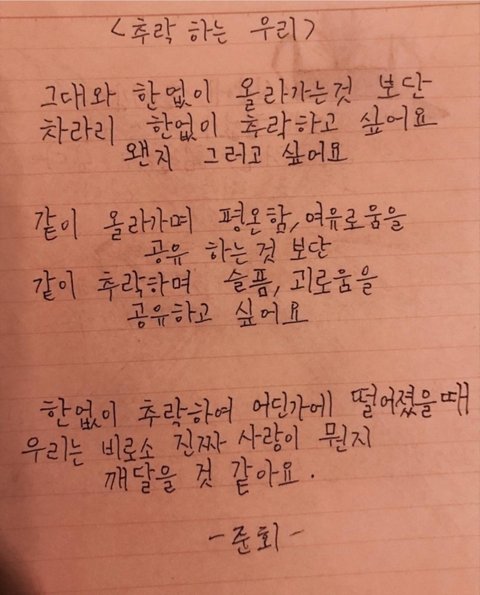 <추락 하는 우리>
그대와 한없이 올라가는것 보단
차라리 한없이 추락하고 싶어요
왠지 그러고 싶어요
같이 올라가며 평온함, 여유로움을
공유 하는것 보단
같이 추락하며 슬픔, 괴로움을
공유하고 싶어요
한없이 추락하여 어딘가에 떨어졌을때
우리는 비로소 진짜 사랑이 뭔지
깨달을 것 같아요.
-준회-